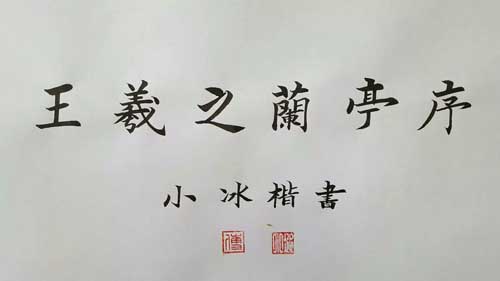 王羲之蘭亭序
小冰楷書